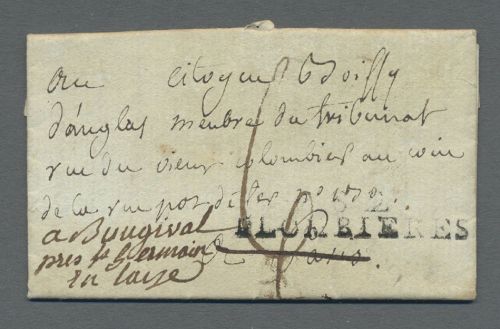 Au Citoyen Boissy
d'anglas membre du tribunat
rue du vieux colombier au coin
de la rue pot de fer n°
82
PLOMBIERES
a Paris.
a Bougival
pres St Germain
En Laye